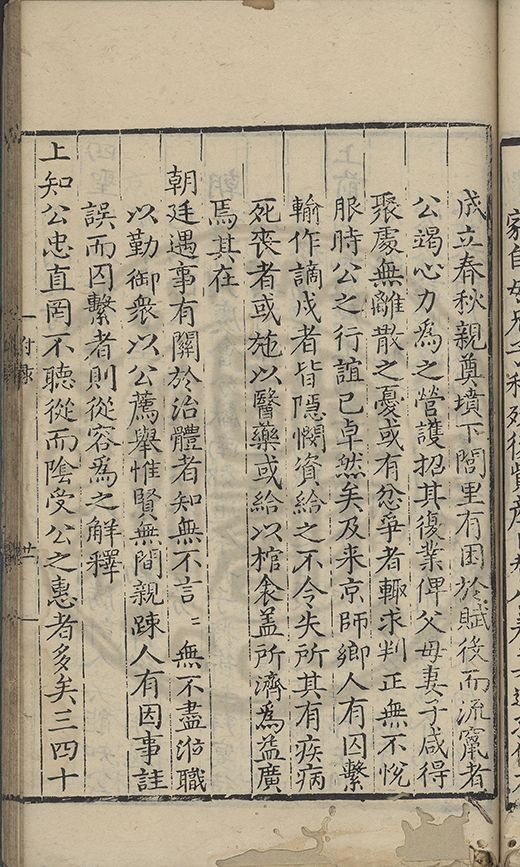 成立春秋親奠墳下閭里有困於賦役而流竄者
公竭心力為之營護招其復業俾父母妻子咸得
聚處無離散之憂或有忿爭者輙求判正無不悅
服時公之行誼已卓然矣及来京師鄉人有囚繫
輸作謫戍者皆隱憫資給之不令失所其有疾病
死喪者或施以醫藥或給以棺衾盖所濟為益廣
焉其在
朝廷遇事有關於治體者知無不言〻無不盡涖職
以勤御衆以公薦舉惟賢無間親踈人有因事詿
誤而囚繫者則從容為之解釋
上知公忠直罔不聽從而陰受公之惠者多矣三四十
付錄
廿一